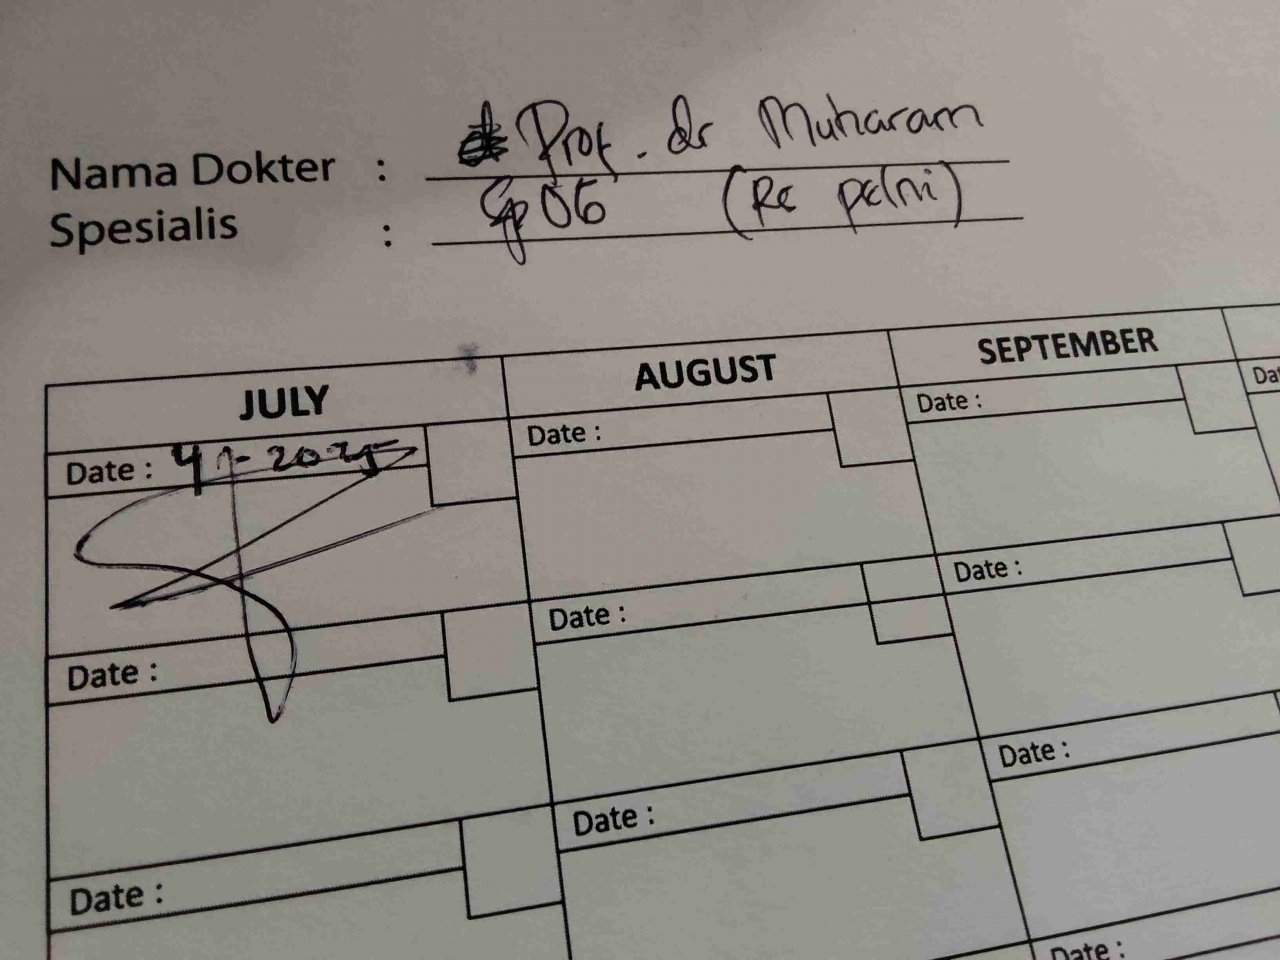 Nama Dokter : Prof. dr Muharam
Spesialis : SpOG (RS pelni)
JULY AUGUST SEPTEMBER
Date : Date : Date : Da
Date : Date : Date :
Date : Date : Date :
Date :